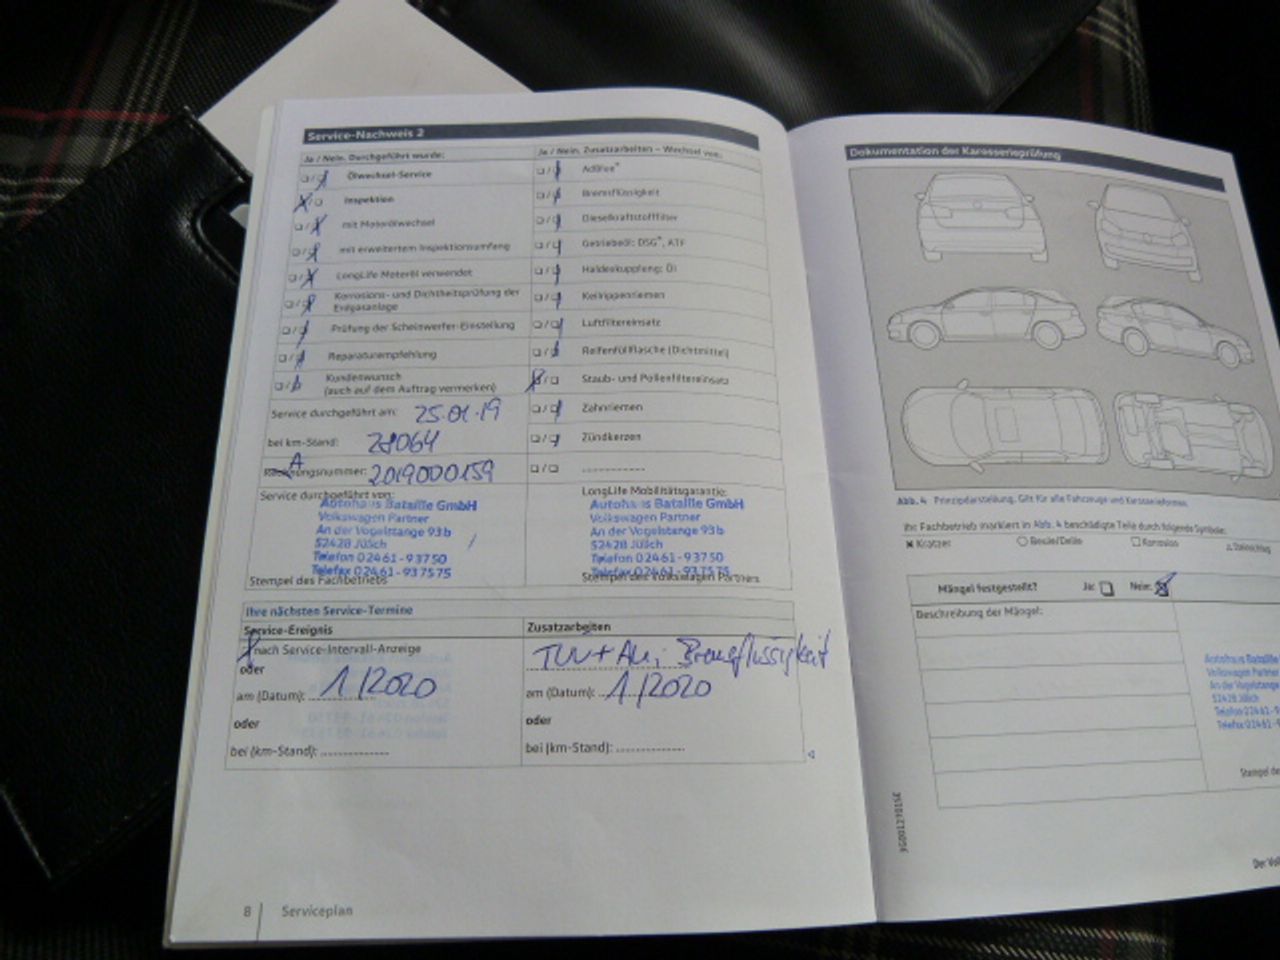 Service-Nachweis 2
Ja / Nein. Durchgeführt wurde:
Ölwechsel-Service
Inspektion
mit Motorölwechsel
mit erweitertem Inspektionsumfang
LongLife Motoröl verwendet
Korrosions- und Dichtheitsprüfung der
Erdgasanlage
Prüfung der Scheinwerfer-Einstellung
Reparaturempfehlung
Kundenwunsch
(auch auf dem Auftrag vermerken)
Service durchgeführt am: 25.01.19
bei km-Stand: 28064
A
Rechnungsnummer: 2019000159
Service durchgeführt von:
Autohaus Bataille GmbH
Volkswagen Partner
An der Vogelstange 93b
52428 Jülich
Telefon 02461-93750
Telefax 02461-937575
Stempel des Fachbetriebs
Ja / Nein. Zusatzarbeiten – Wechsel von:
AdBlue®
Bremsflüssigkeit
Dieselkraftstofffilter
Getriebeöl: DSG®, ATF
Haldexkupplung: Öl
Keilrippenriemen
Luftfiltereinsatz
Reifenfüllflasche (Dichtmittel)
Staub- und Pollenfiltereinsatz
Zahnriemen
Zündkerzen
LongLife Mobilitätsgarantie:
Autohaus Bataille GmbH
Volkswagen Partner
An der Vogelstange 93b
52428 Jülich
Telefon 02461-93750
Telefax 02461-937575
Stempel des Volkswagen Partners
Ihre nächsten Service-Termine
Service-Ereignis
nach Service-Intervall-Anzeige
oder
am (Datum): 1/2020
oder
bei (km-Stand):
Zusatzarbeiten
TÜV + AU; Bremsflüssigkeit
am (Datum): 1/2020
oder
bei (km-Stand):
8 Serviceplan
Dokumentation der Karosserieprüfung
Abb. 4 Prinzipdarstellung. Gilt für alle Fahrzeuge und Karosserieformen.
Ihr Fachbetrieb markiert in Abb. 4 beschädigte Teile durch folgende Symbole:
Kratzer Beule/Delle Korrosion Steinschlag
Mängel festgestellt? Ja: Nein:
Beschreibung der Mängel:
Autohaus Bataille
Volkswagen Partner
An der Vogelstange
52428 Jülich
Telefon 02461-9
Telefax 02461-9
Stempel de
3G0012701SE
Der Vol